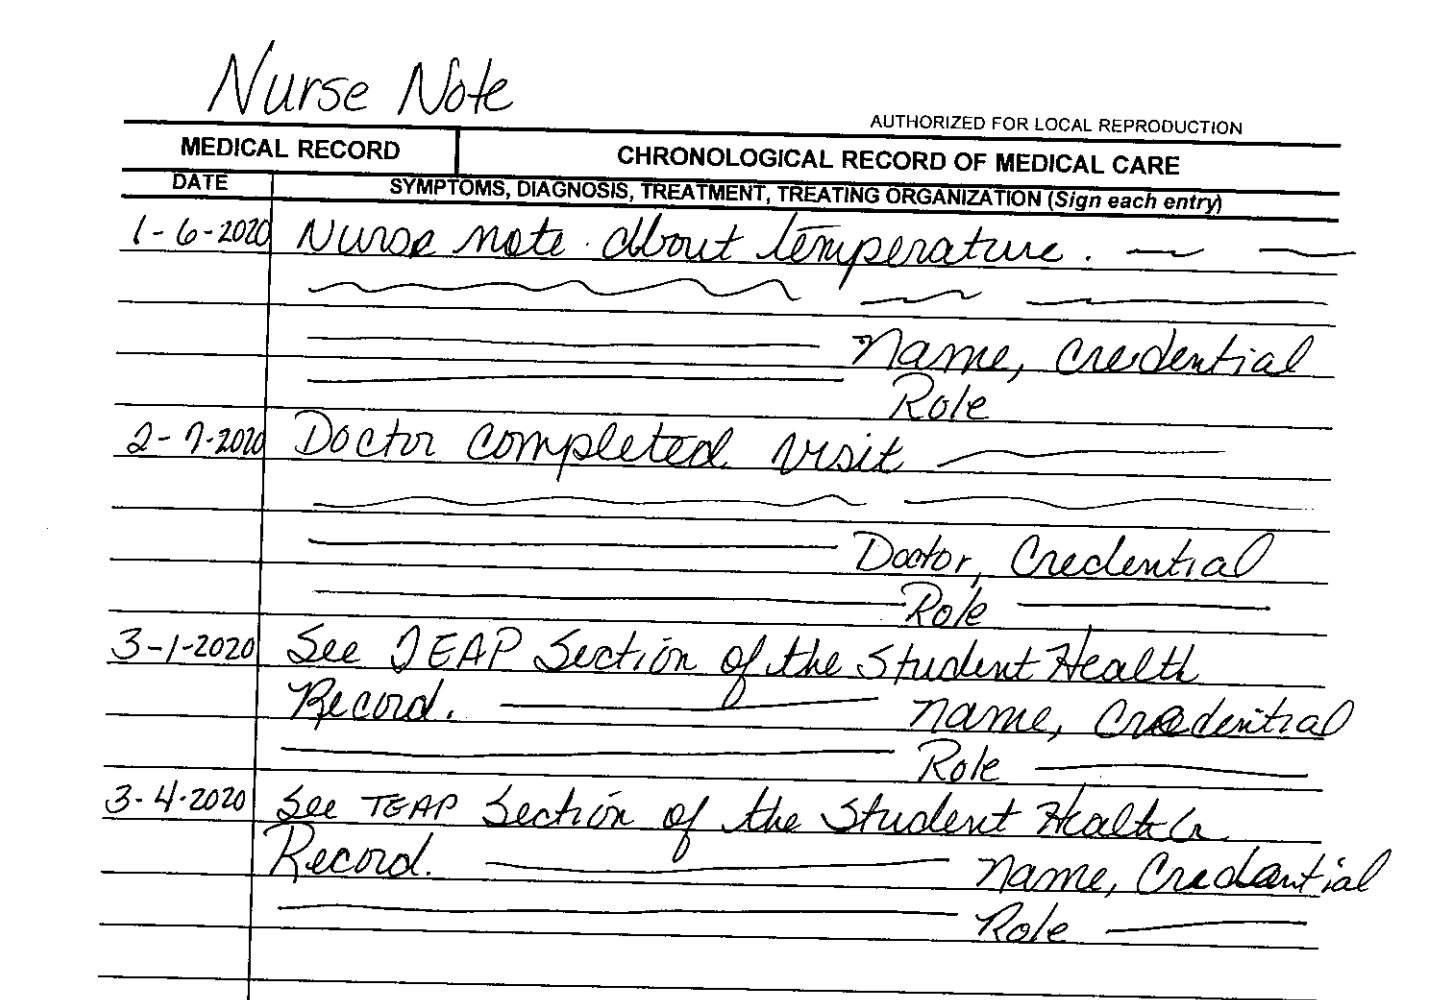 Nurse Note
AUTHORIZED FOR LOCAL REPRODUCTION
MEDICAL RECORD CHRONOLOGICAL RECORD OF MEDICAL CARE
DATE SYMPTOMS, DIAGNOSIS, TREATMENT, TREATING ORGANIZATION (Sign each entry)
1-6-2020 Nurse note about temperature.
Name, Credential
Role
2-7-2020 Doctor completed visit
Doctor, Credential
Role
3-1-2020 See TEAP Section of the Student Health
Record. Name, Credential
Role
3-4-2020 See TEAP Section of the Student Health
Record. Name, Credential
Role